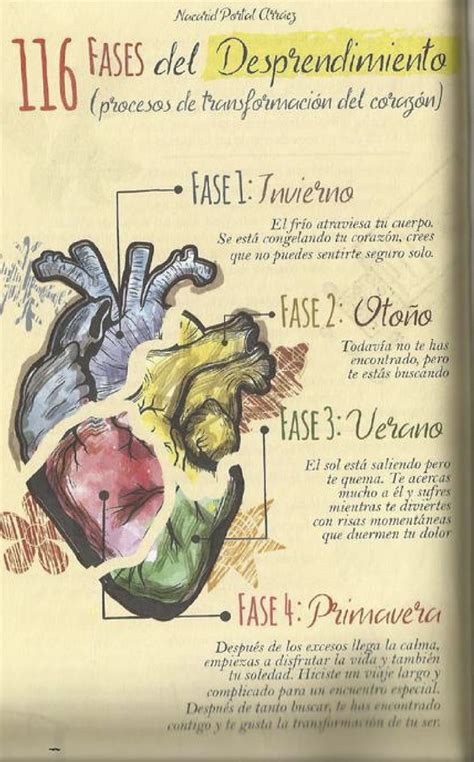 Nacarid Portal Arráez
116 FASES del Desprendimiento
(procesos de transformación del corazón)
FASE 1: Invierno
El frío atraviesa tu cuerpo.
Se está congelando tu corazón, crees
que no puedes sentirte seguro solo.
FASE 2: Otoño
Todavía no te has
encontrado, pero
te estás buscando
FASE 3: Verano
El sol está saliendo pero
te quema. Te acercas
mucho a él y sufres
mientras te diviertes
con risas momentáneas
que duermen tu dolor
FASE 4: Primavera
Después de los excesos llega la calma,
empiezas a disfrutar la vida y también
tu soledad. Hiciste un viaje largo y
complicado para un encuentro especial.
Después de tanto buscar, te has encontrado
contigo y te gusta la transformación de tu ser.